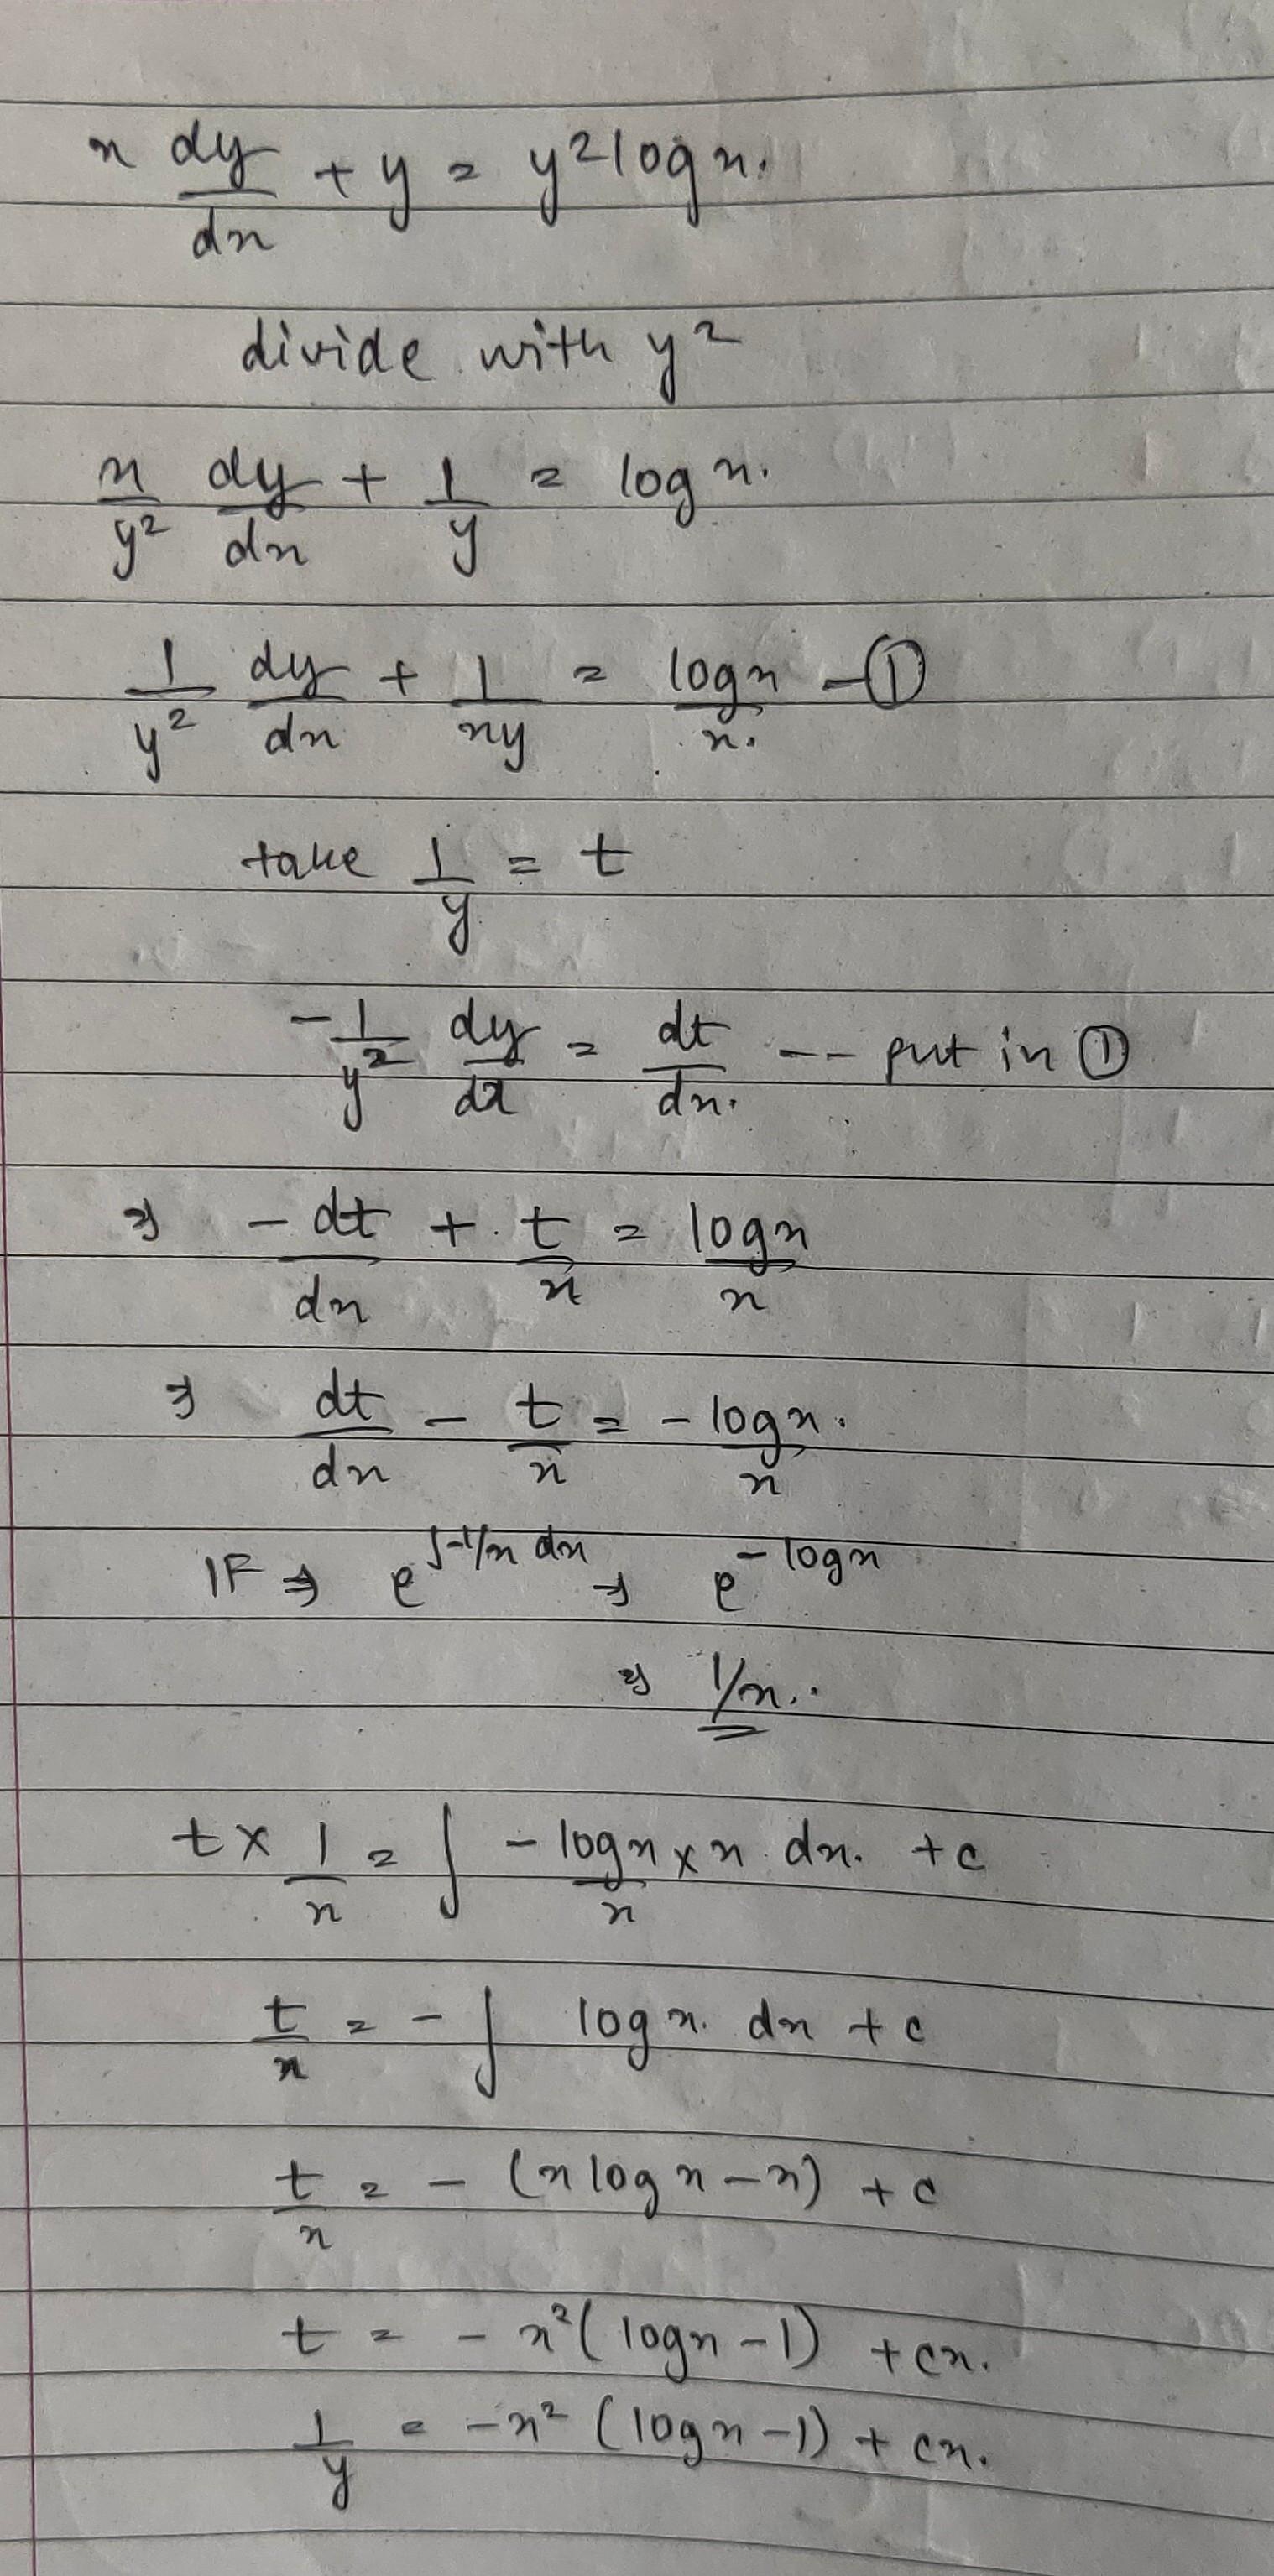 x dy/dx + y = y² log x.
divide with y²
x/y² dy/dx + 1/y = log x.
1/y² dy/dx + 1/xy = log x/x. — ①
take 1/y = t
-1/y² dy/dx = dt/dx. --- put in ①
⇒ - dt/dx + t/x = log x/x
⇒ dt/dx - t/x = - log x/x.
IF ⇒ e^∫-1/x dx → e^- log x
⇒ 1/x..
t × 1/x = ∫ - log x/x × x dx. + c
t/x = - ∫ log x. dx + c
t/x = - (x log x - x) + c
t = - x² (log x - 1) + cx.
1/y = -x² (log x - 1) + cx.